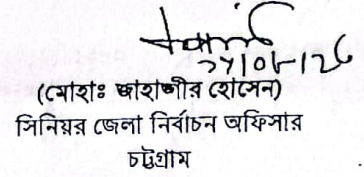 (মোহাঃ জাহাঙ্গীর হোসেন)
সিনিয়র জেলা নির্বাচন অফিসার
চট্টগ্রাম